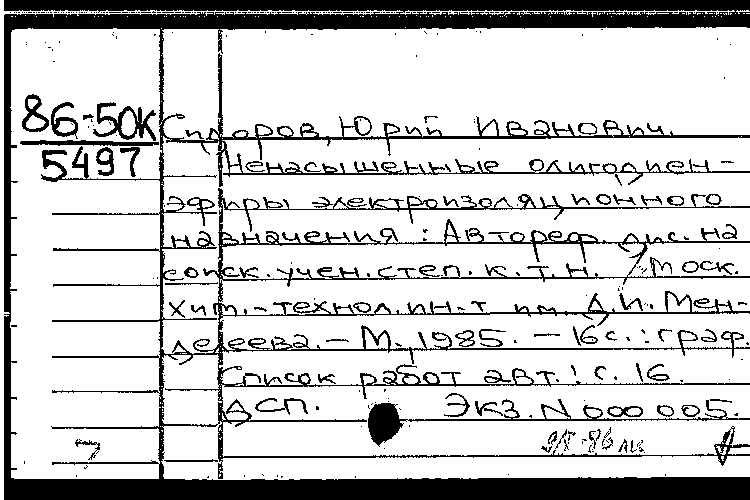 86-50К
5497
Сидоров, Юрий Иванович.
Ненасыщенные олигодиен-
эфиры электроизоляционного
назначения : Автореф. дис. на
соиск. учен. степ. к. т. н. / Моск.
хим.-технол. ин-т им. Д. И. Мен-
делеева. - М., 1985. - 16 с. : граф.
Список работ авт.: с. 16.
ДСП. Экз. N 000 005.
7